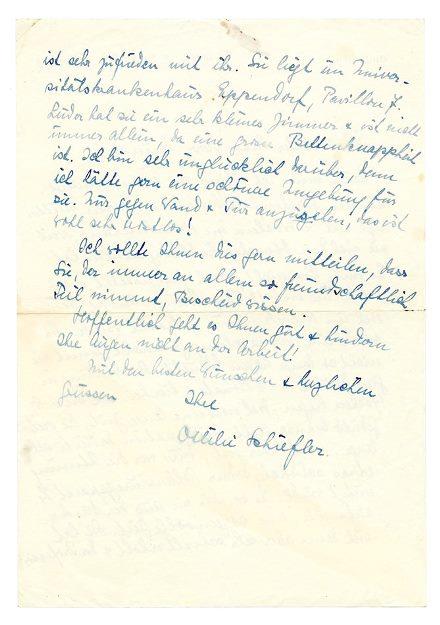 ist sehr zufrieden mit ihr. Sie liegt im Univer-
sitätskrankenhaus Eppendorf, Pavillon 7.
Leider hat sie ein sehr kleines Zimmer & ist nicht
immer allein, da eine grosse Bettenknappheit
ist. Ich bin sehr unglücklich darüber, denn
ich hätte gern eine schöne Umgebung für
sie. Nur gegen Wand & Tür anzusehen, das ist
wohl sehr trostlos!
Ich wollte Ihnen dies gern mitteilen, dass
Sie, der immer an allem so freundschaftlich
Teil nimmt, Bescheid wissen.
Hoffentlich geht es Ihnen gut & hindern
Ihre Augen nicht an der Arbeit!
Mit den besten Wünschen & herzlichen
Grüssen Ihre
Ottilie Schiefler.